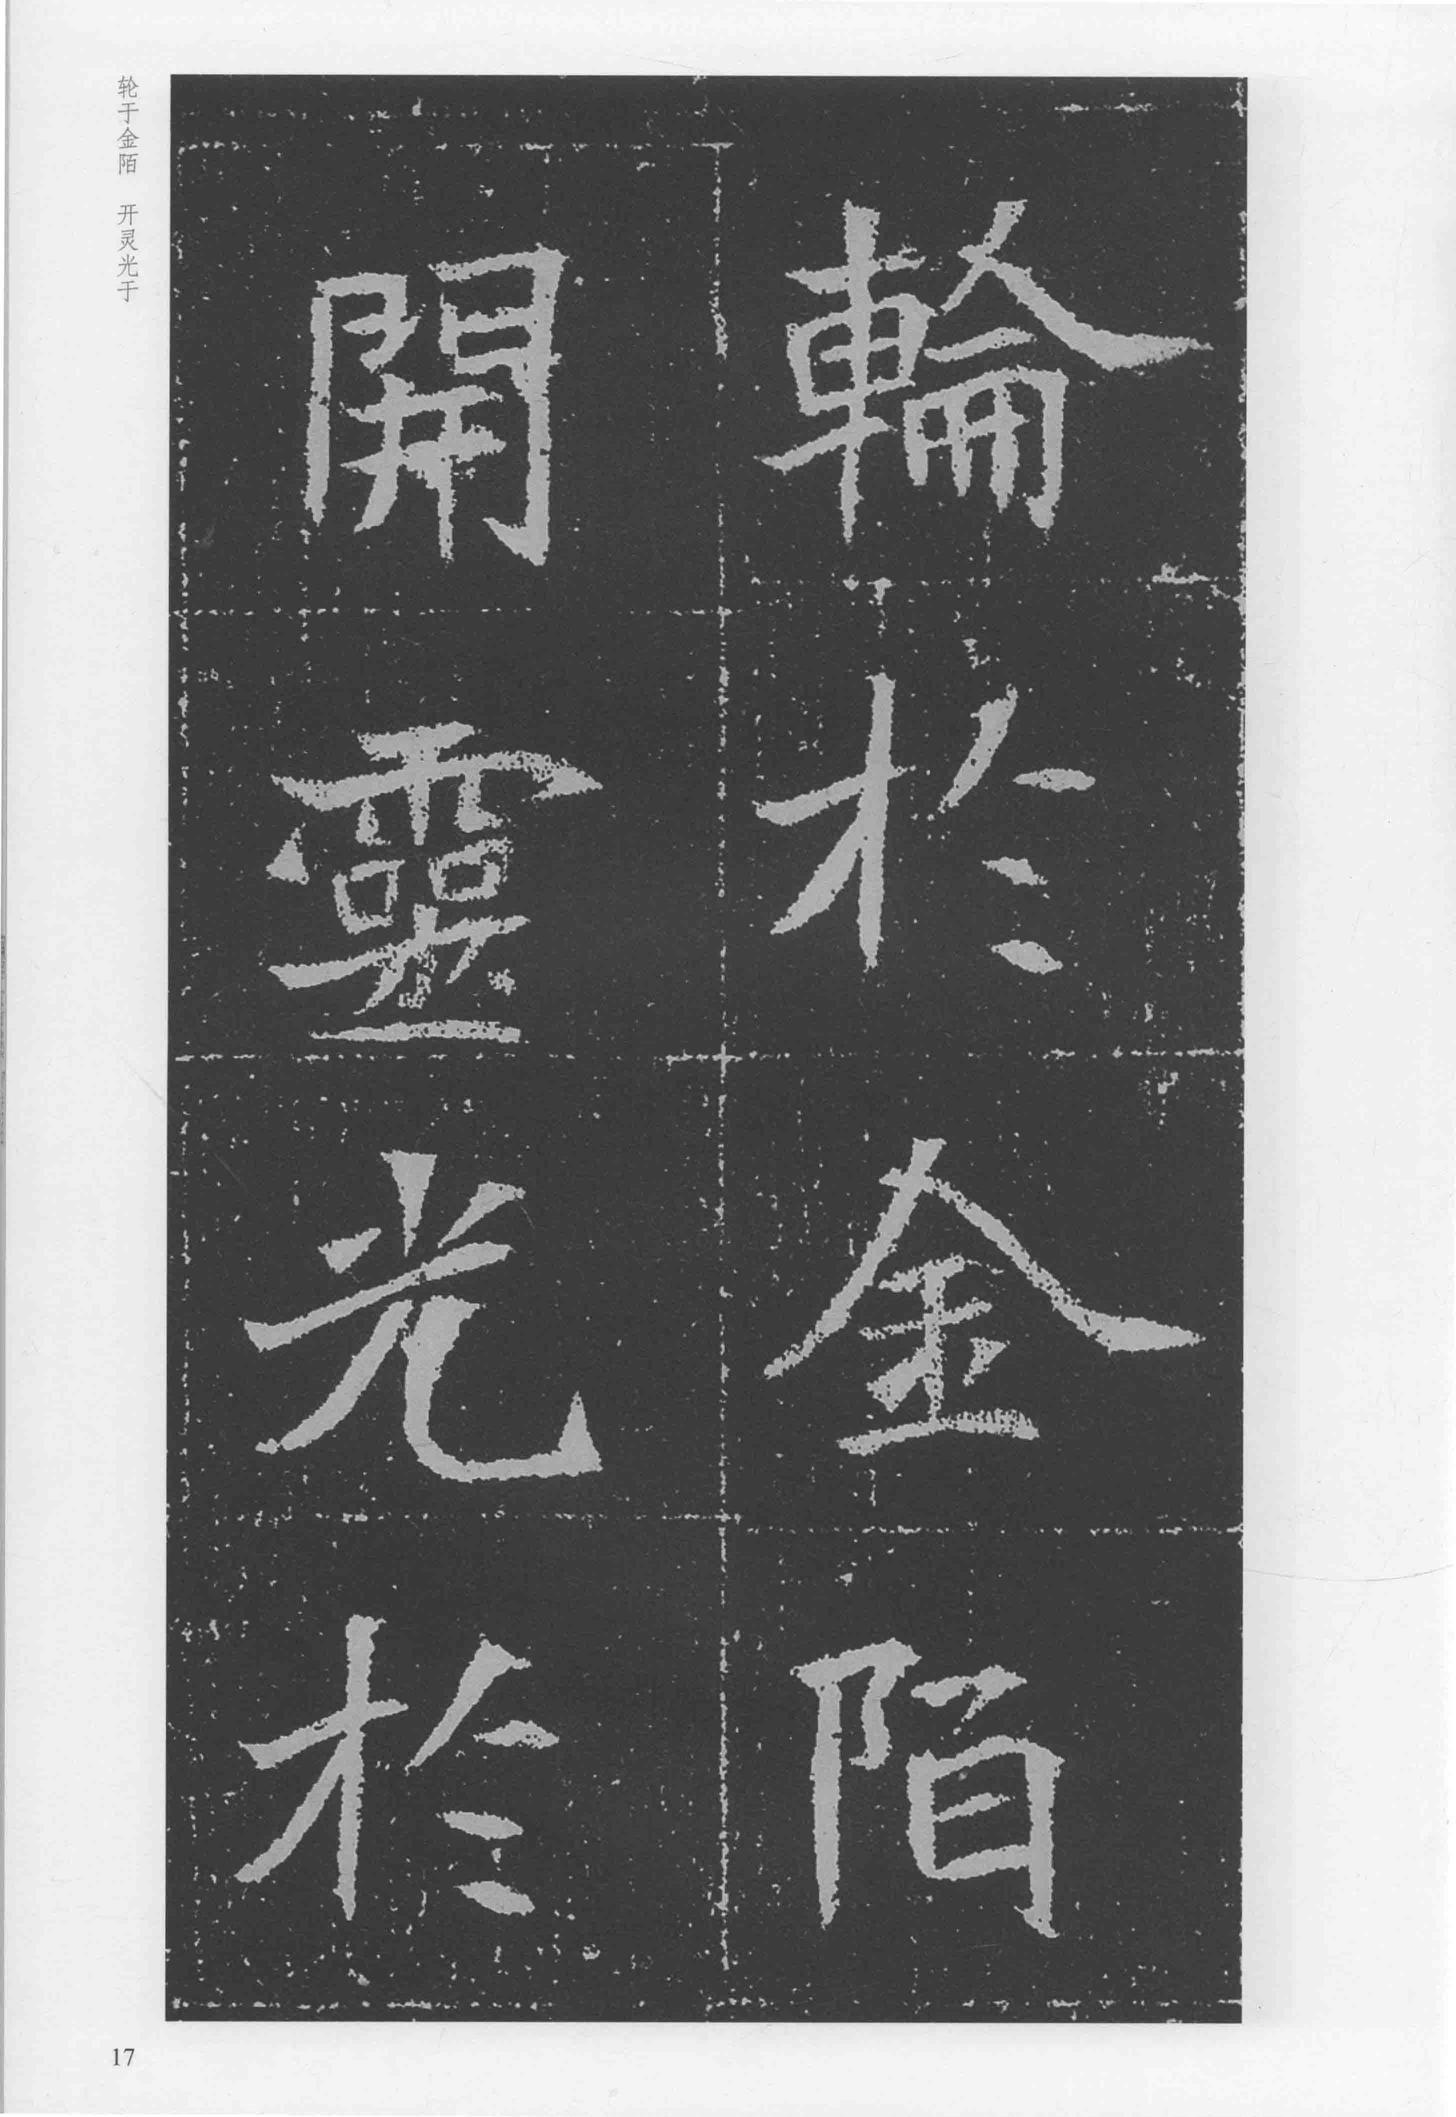 輪於金陌
開靈光於
轮于金陌 开灵光于
17